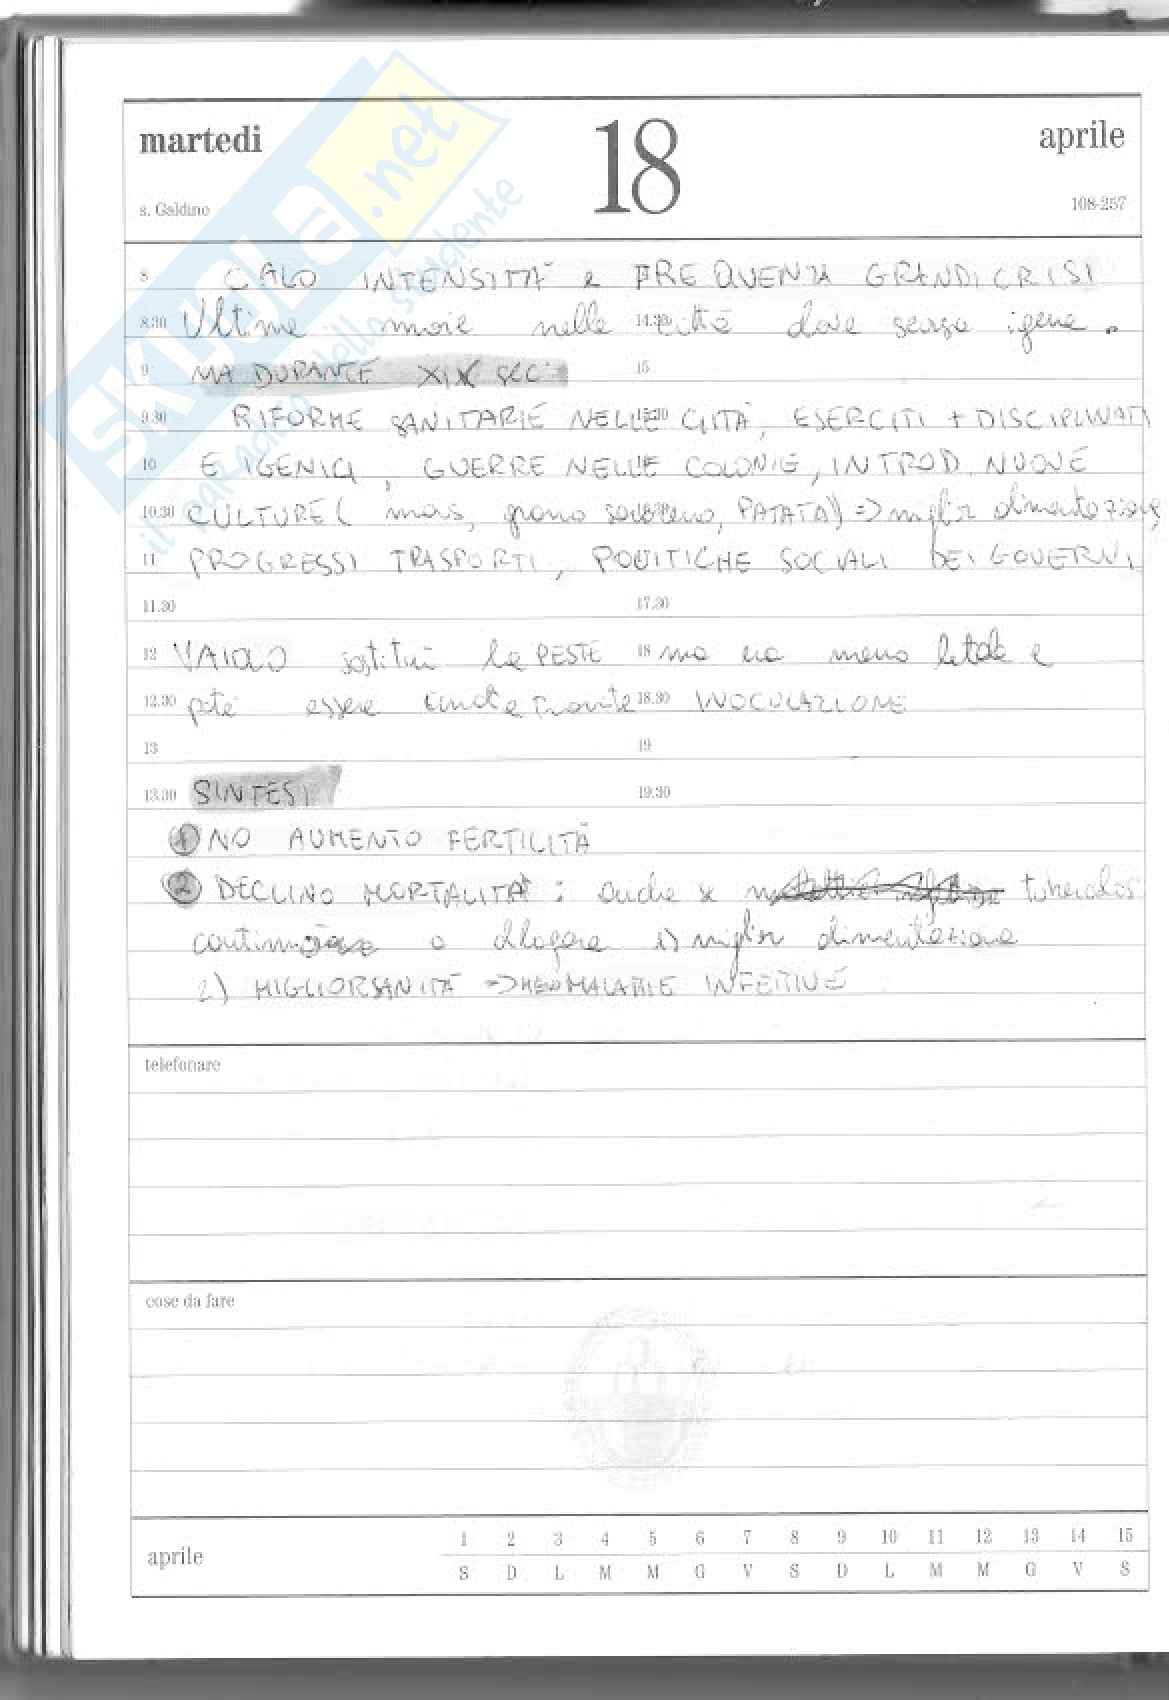 SKUOLA.net
il paradiso dello studente
martedì 18 aprile
s. Galdino 108-257
8 CALO INTENSITÀ e FREQUENZA GRANDI CRISI
8.30 Ultime nelle 14.30 città dove senso igene.
9 MA DURANTE XIX SEC: 15
9.30 RIFORME SANITARIE NELLE CITTÀ, ESERCITI + DISCIPLINATI
10 E IGENICI, GUERRE NELLE COLONIE, INTROD. NUOVE
10.30 CULTURE ( mais, grano saraceno, PATATA) => miglior alimentazione,
11 PROGRESSI TRASPORTI, POLITICHE SOCIALI DEI GOVERNI
11.30 17.30
12 VAIOLO sostituì la PESTE 18 ma era meno letale e
12.30 poté essere tramite 18.30 INOCULAZIONE
13 19
13.30 SINTESI 19.30
1 NO AUMENTO FERTILITÀ
2 DECLINO MORTALITÀ: anche se tubercolosi
a dilagare 1) miglior alimentazione
2) MIGLIOR SANITÀ => MENO MALATTIE INFETTIVE
telefonare
cose da fare
aprile
1 2 3 4 5 6 7 8 9 10 11 12 13 14 15
S D L M M G V S D L M M G V S